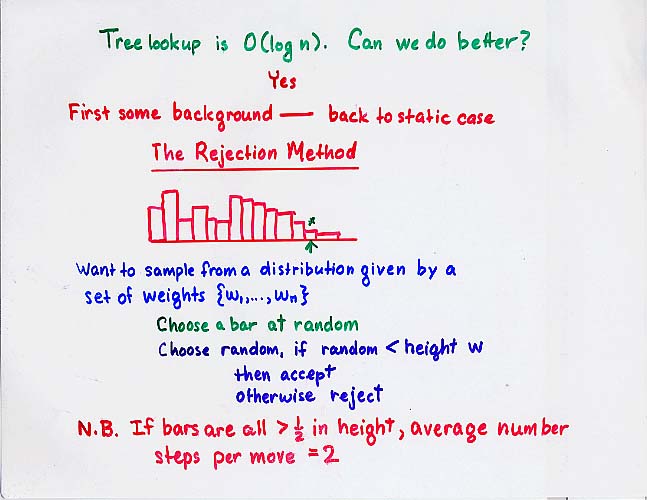 Tree lookup is O(log n). Can we do better?
Yes
First some background — back to static case
The Rejection Method
x
Want to sample from a distribution given by a
set of weights {w₁,...,wₙ}
Choose a bar at random
Choose random, if random < height w
then accept
otherwise reject
N.B. If bars are all > ½ in height, average number
steps per move = 2